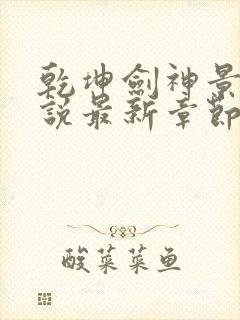 乾坤劍神景
說最新章節
酸菜菜鱼